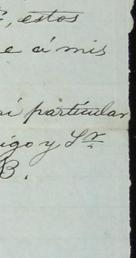 estos
e á mis
particular
igo y Sr.
B.